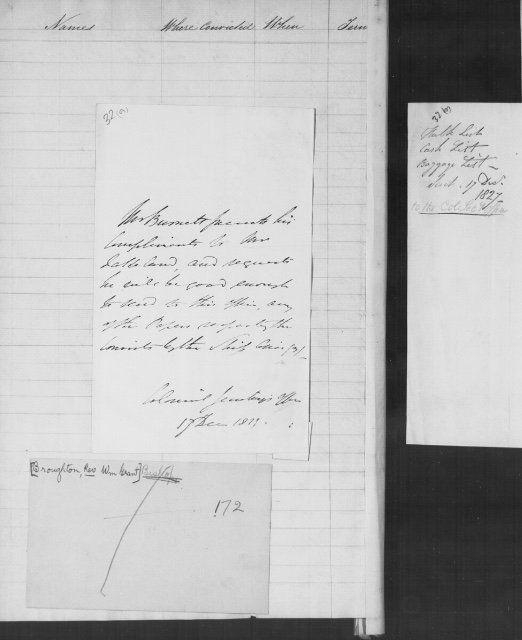 Names Where Convicted When Term
32 (a)
Mr Burnett presents his
Compliments to Mr
and requests
he will be good enough
to send to this office, any
of the Papers respecting the
Convicts by the Ship
Colonial Secretary's Office
17 Dec 1827.
[Broughton, Rev Wm Grant] Bishop
172
32 (b)
List
Cash List
Baggage List
Sent. 17 Decr.
1827
to the Col. Sec's Office